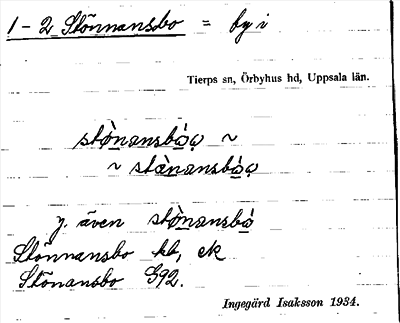 1-2 Stönnansbo = by i
Tierps sn, Örbyhus hd, Uppsala län.
stø̀nansbá̱o̱ ~
~ stæ̀nansbá̱o̱
y. även stø̀nansbá̱
Stönnansbo kb, ek
Stönansbo G92.
Ingegärd Isaksson 1934.